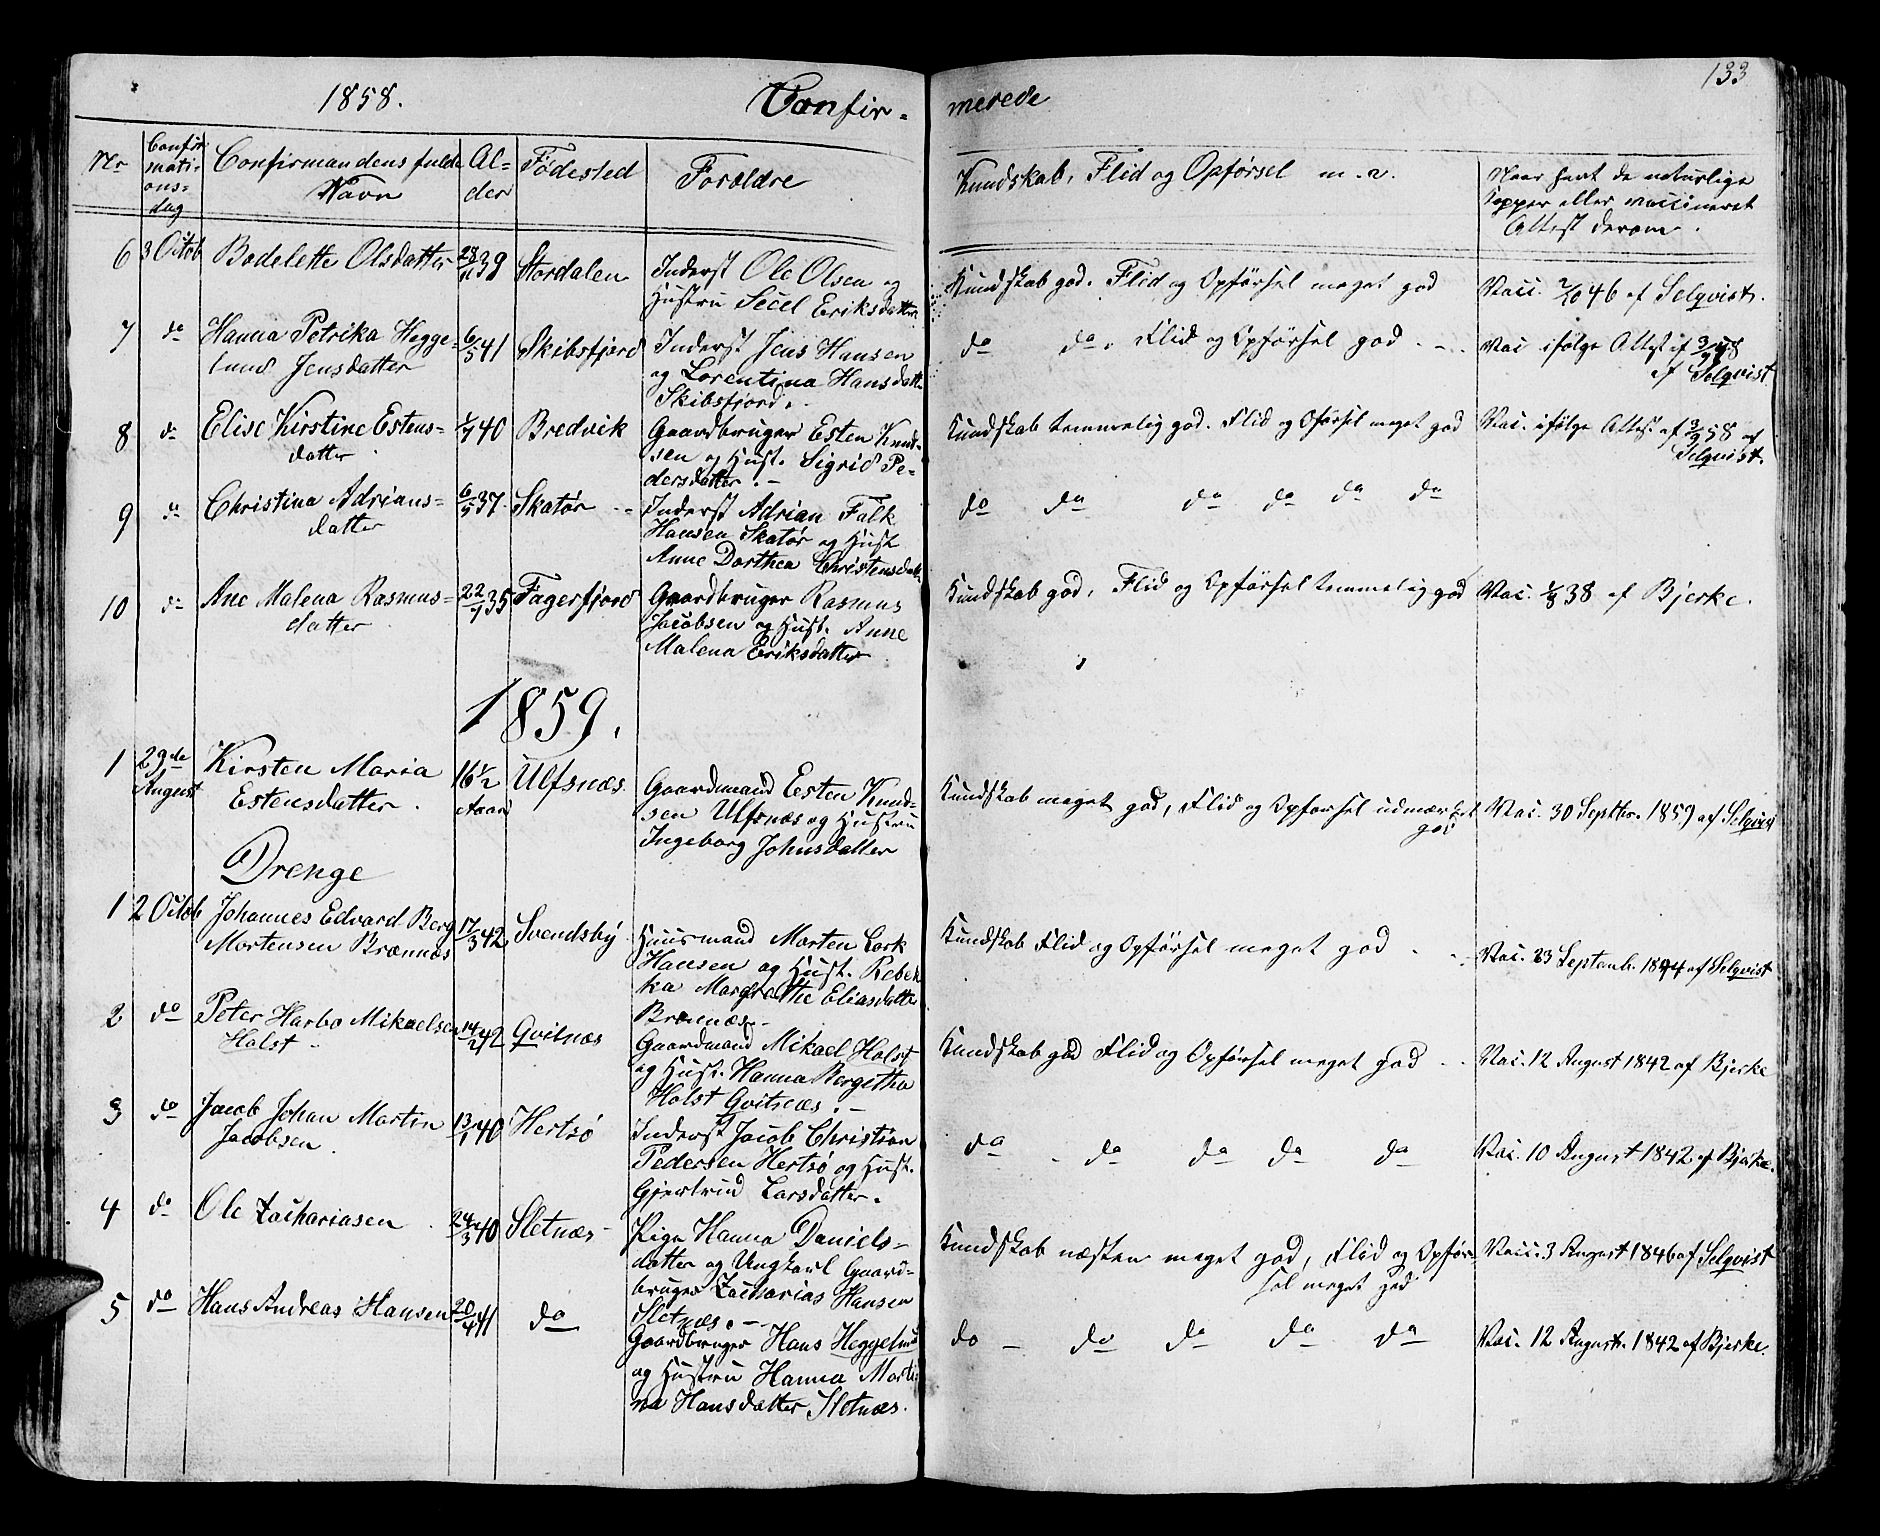 133
1858. Confir- merede
Nr
Confir
mati-
ons-
dag
Confirmandens fulde
Navn
Al-
der
Fødested
Forældre
Kundskab, Flid og Opførsel m. v.
Naar havt de naturlige
Kopper eller vaccineret
Attest derom.
6 3 Octob Bodelette Olsdatter 28/11 39 Stordalen
Inderst Ole Olsen og
Hustru Secel Eriksdatter
Kundskab god. Flid og Opførsel meget god
Vacc. 7/10 46 af Selqvist.
7 do Hanna Petrika Hegge-
lund Jensdatter
6/5 41 Skibsfjord
Inderst Jens Hansen
og Lorentina Hansdatt.
Skibsfjord.
do do. Flid og Opførsel god
Vac ifølge Attest af 3/9 58
af Selqvist
8 do Elise Kirstine Estens-
datter
1/7 40 Bredvik
Gaardbruger Esten Knud-
sen og Hust. Sigrid Pe-
dersdatter.
Kundskab temmelig god. Flid og Oførsel meget god
Vac. ifølge Attest af 3/9 58 af
Selqvist.
9 do Christina Adrians-
datter
6/5 37. Skatør
Inderst Adrian Falk
Hansen Skatør og Hust
Anne Dorthea Christensdatt.
do do do do do do
10 do Ane Malena Rasmus-
datter
22/1 35 Fagerfjord
Gaardbruger Rasmus
Jacobsen og Hust. Anne
Malena Eriksdatter
Kundskab god, Flid og Opførsel temmelig god
Vac. 1/8 38 af Bjerke.
1859.
1 29de
August
Kirsten Maria
Estensdatter.
16 1/2
Aaar
Ulfsnæs.
Gaardmand Esten Knud-
sen Ulfsnæs og Hustru
Ingeborg Johnsdatter
Kundskab meget god, Flid og Opførsel udmærket
god
Vac. 30 Septbr. 1859 af Selqvist
Drenge
1 2 Octob Johannes Edvard Berg
Mortensen Brænnæs
17/3 42 Svendsby
Huusmand Morten Lark
Hansen og Hust. Rebek
ka Margrethe Eliasdatter
Brænnæs
Kundskab Flid og Opførsel meget god
Vac. 23 Septemb. 1844 af Selqvist
2 do Peter Harbo Mikaelsen
Holst
14/2 42 Gvitnæs
Gaardmand Mikael Holst
og Hust. Hanna Bergitha
Holst Gvitnæs.
Kundskab god Flid og Opførsel meget god
Vac. 12 August 1842 af Bjerke
3 do Jacob Johan Martin
Jacobsen.
13/1 40 Hertsø
Inderst Jacob Christian
Pedersen Hertsø og Hust.
Gjertrud Larsdatter.
do do do do do
Vac. 10 August 1842 af Bjerke.
4 do Ole Zachariasen 24/3 40 Sletnæs
Pige Hanna Daniels-
datter og Ungkarl Gaard-
bruger Zacharias Hansen
Sletnæs.
Kundskab næsten meget god, Flid og Opfør-
sel meget god
Vacc. 3 August 1846 af Selqvist
5 do Hans Andreas Hansen 20/4 41 do
Gaardbruger Hans Heggelund
og Hustru Hanna Marti
na Hansdatter Sletnæs.
do do do do do
Vac. 12 August. 1842 af Bjerke.